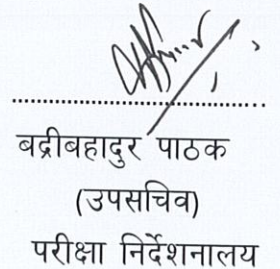 बद्रीबहादुर पाठक
(उपसचिव)
परीक्षा निर्देशनालय